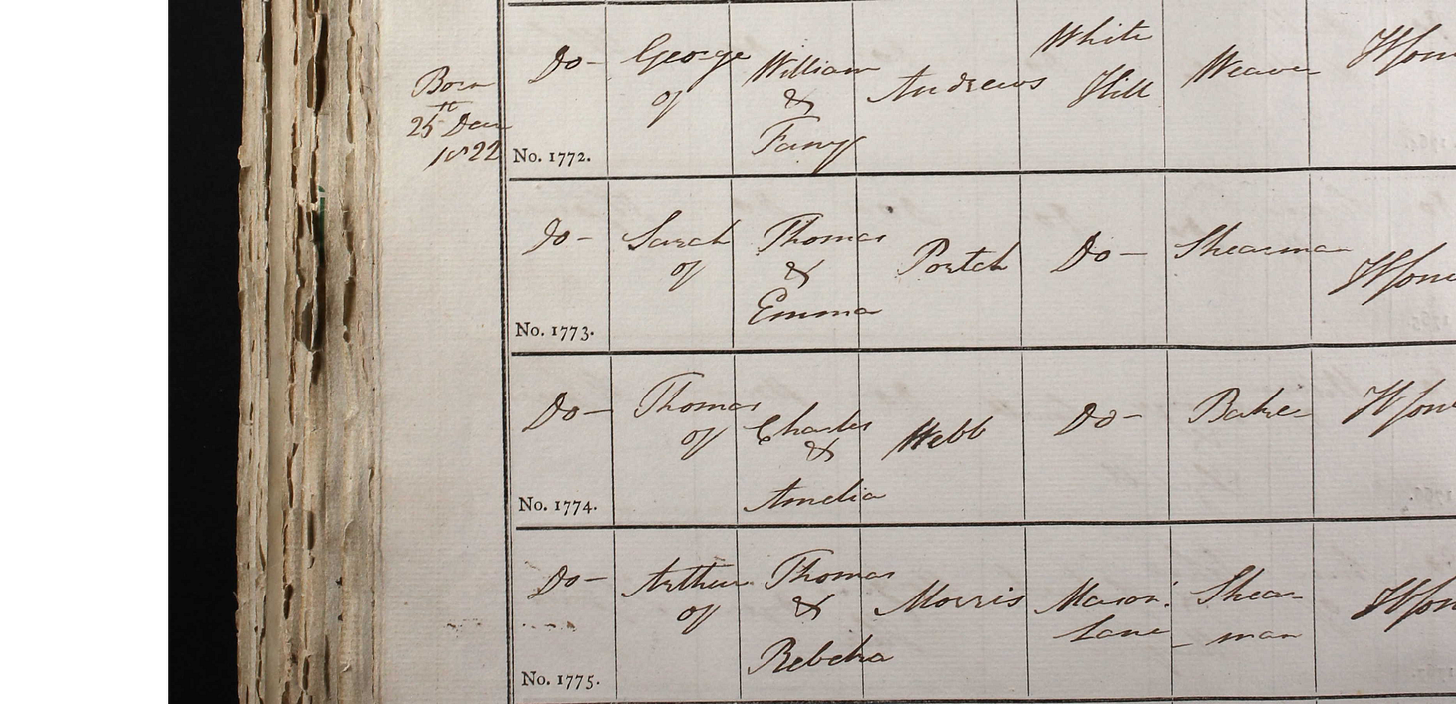 Born
th
25 Decr
1822
Do-
George
of
William
&
Fanny
Andrews
White
Hill
Weaver
No. 1772.
Do-
Sarah
of
Thomas
&
Emma
Portch
Do-
Shearman
No. 1773.
Do-
Thomas
of
Charles
&
Amelia
Webb
Do-
Baker
No. 1774.
Do-
Arthur
of
Thomas
&
Rebeka
Morris
Mason's
Lane
Shear
-man
No. 1775.